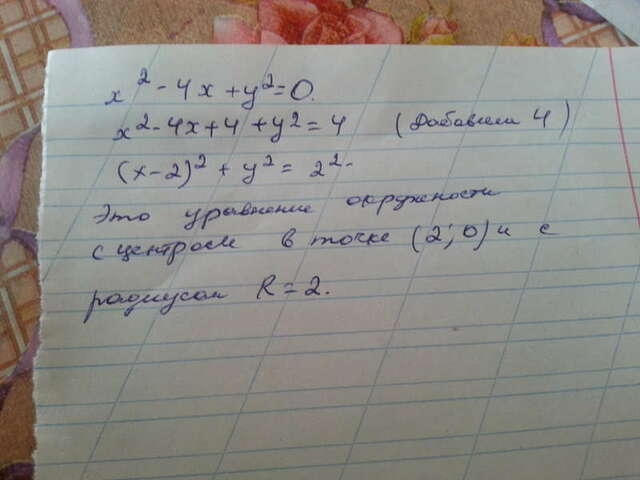 x² - 4x + y² = 0.
x² - 4x + 4 + y² = 4 (Добавим 4)
(x - 2)² + y² = 2².
Это уравнение окружности
с центром в точке (2; 0) и с
радиусом R = 2.